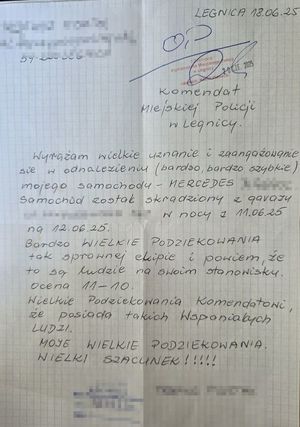 LEGNICA 18.06.25
59-
Komendat
Miejskiej Policji
w Legnicy.
Wyrażam wielkie uznanie i zaangażowanie
się w odnalezieniu (bardzo, bardzo szybkie)
mojego samochodu - MERCEDES
Samochód został skradziony z garażu
w nocy z 11.06.25
na 12.06.25.
Bardzo WIELKIE PODZIĘKOWANIA
tak sprawnej ekipie i powiem, że
to są ludzie na swoim stanowisku.
Ocena 11-10.
Wielkie Podziękowania Komendatowi,
że posiada takich Wspaniałych
LUDZI.
MOJE WIELKIE PODZIĘKOWANIA.
WIELKI SZACUNEK!!!!!